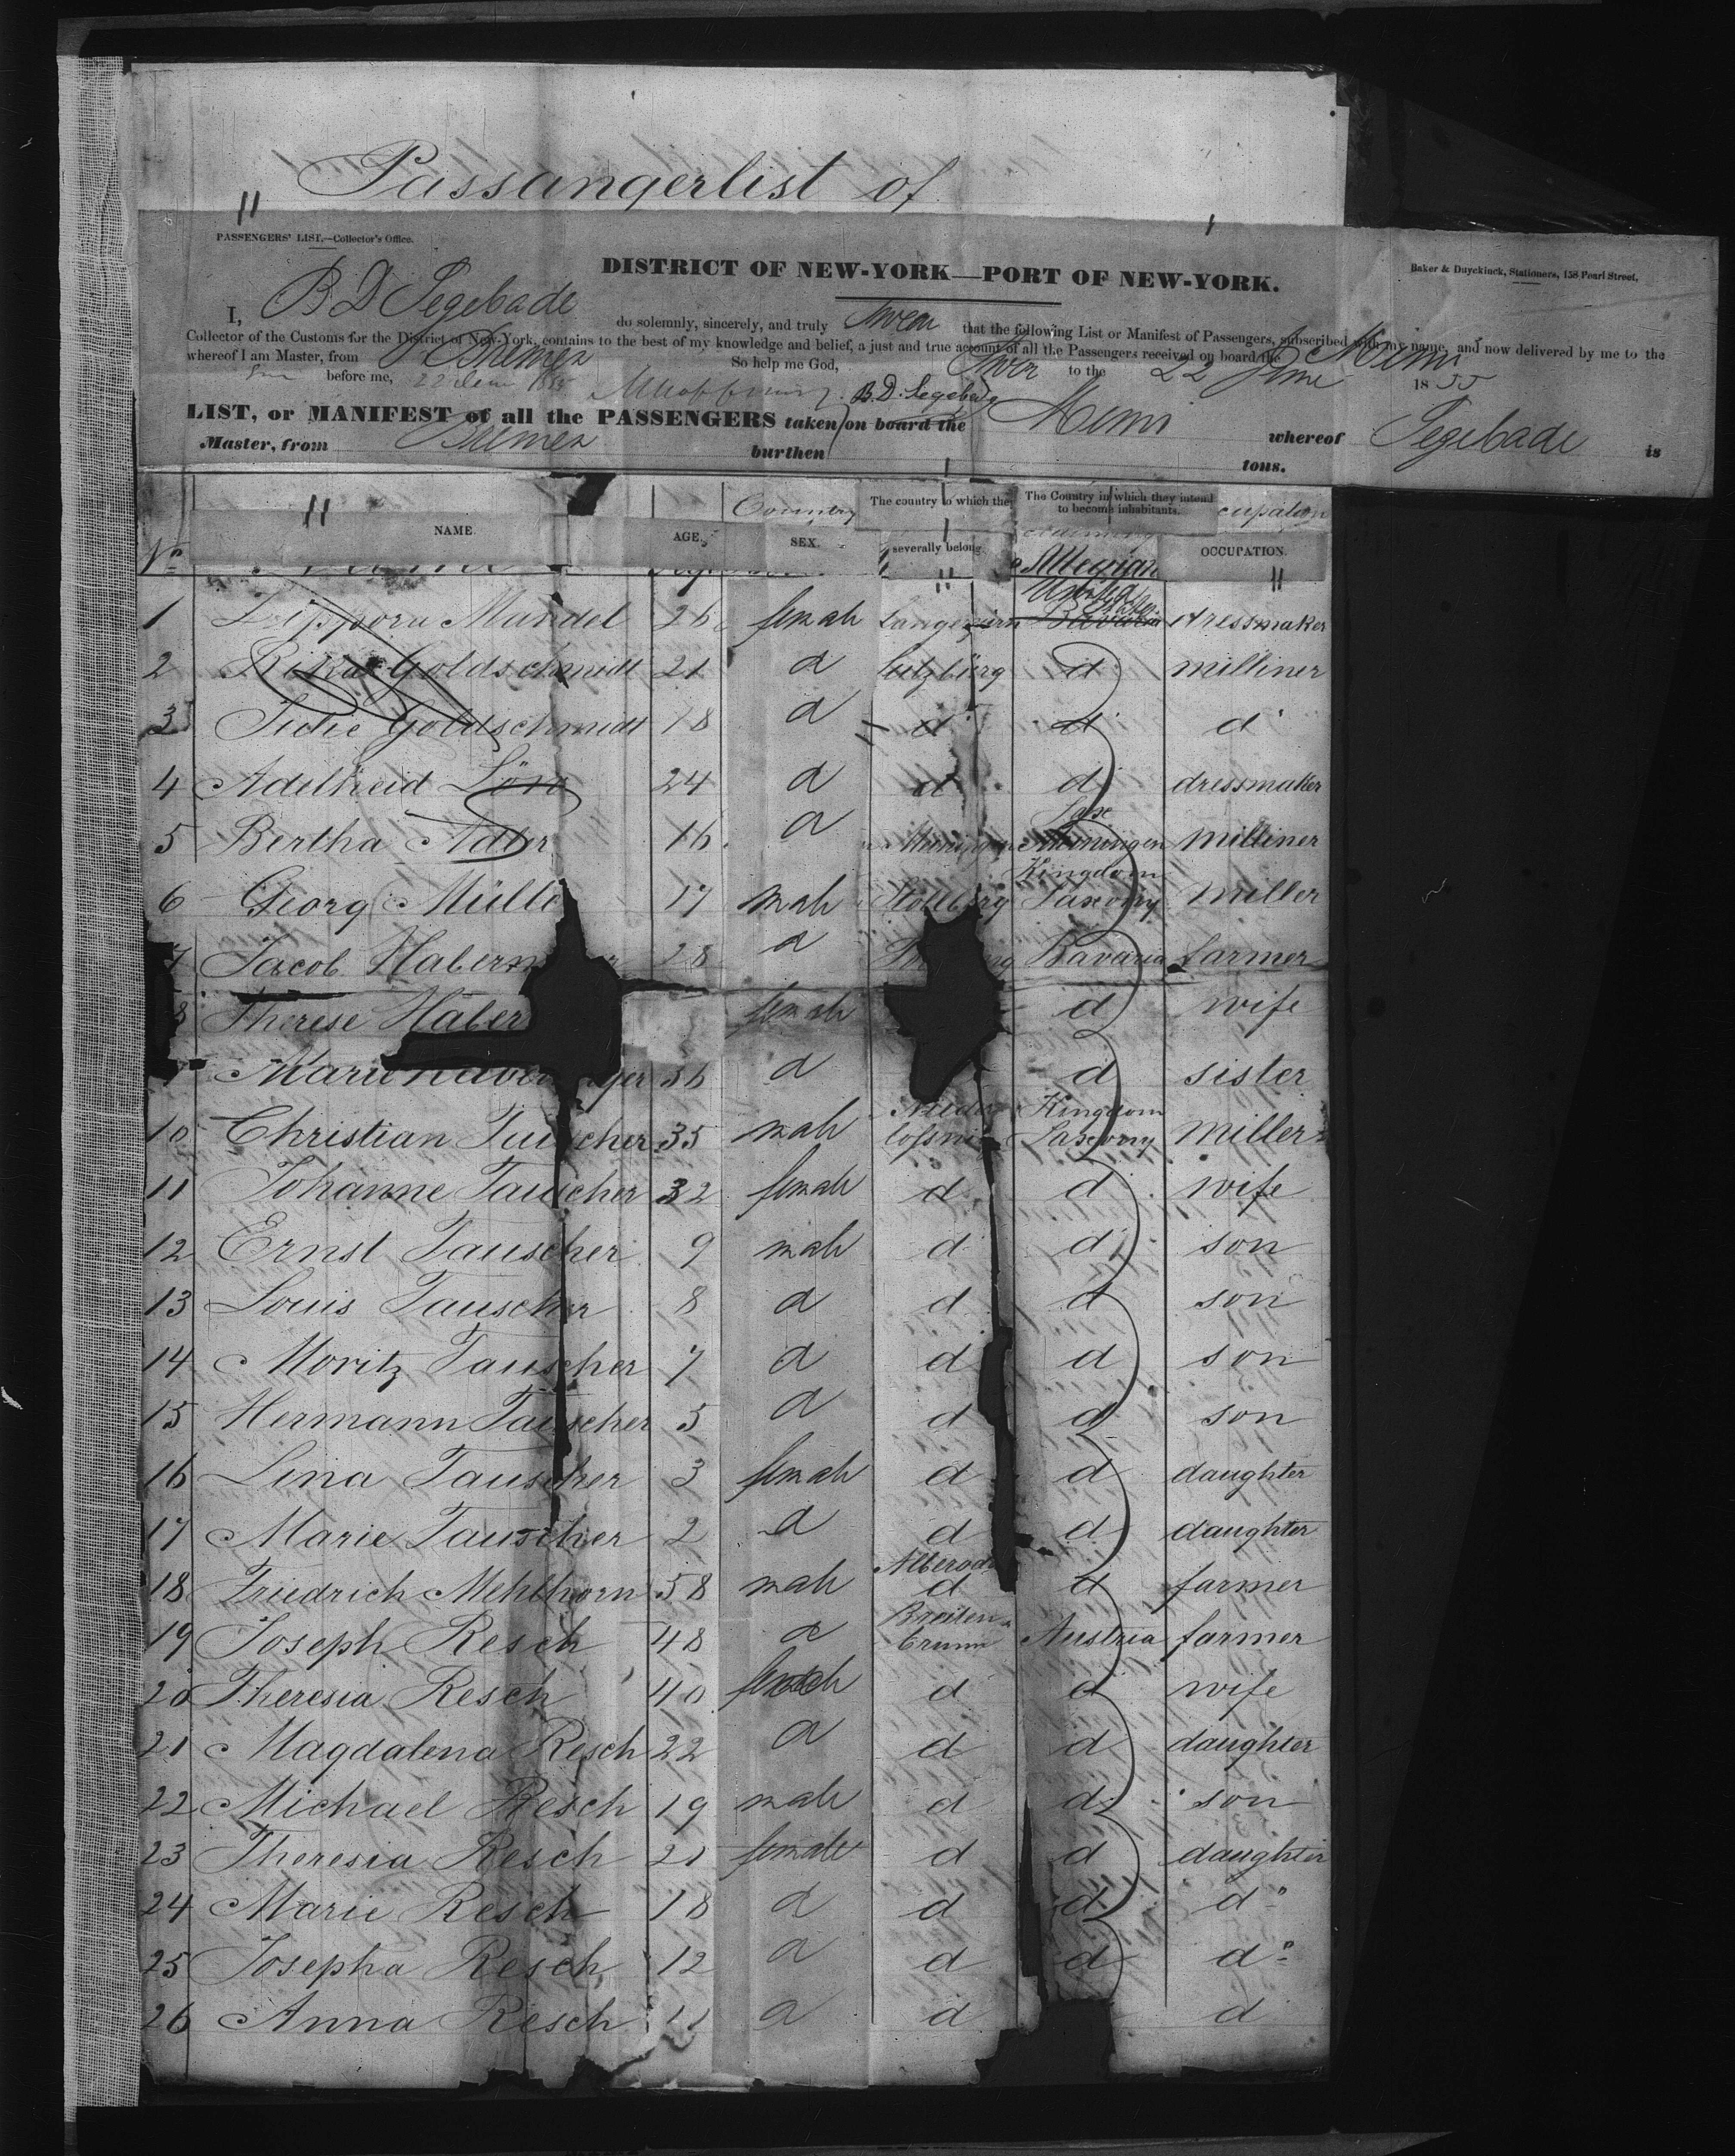 Passangerlist of
PASSENGERS' LIST.—Collector's Office.
DISTRICT OF NEW-YORK—PORT OF NEW-YORK.
Baker & Duyckinck, Stationers, 158 Pearl Street.
I, B D Segebade do solemnly, sincerely, and truly Swear that the following List or Manifest of Passengers, subscribed with my name, and now delivered by me to the
Collector of the Customs for the District of New-York, contains to the best of my knowledge and belief, a just and true account of all the Passengers received on board the Mimi
whereof I am Master, from Bremen So help me God,
before me, to the 22 June 1855 B.D. Segebade
LIST, or MANIFEST of all the PASSENGERS taken on board the Mimi whereof Segebade is
Master, from Bremen burthen tons.
No NAME. AGE. SEX. The country to which they severally belong. The Country in which they intend to become inhabitants. OCCUPATION.
Country cupation
United States
1 Mandel 26 female Bavaria dressmaker
2 Goldschmidt 21 d d milliner
3 Goldschmidt 18 d d d d
4 Adelheid 24 d d d dressmaker
5 Bertha Adler 16 d Meiningen milliner
6 Georg Mülle 17 male Stollberg Kingdom Saxony miller
7 Jacob Haberm 28 d Bavaria farmer
8 Therese Haber female d wife
Marie 36 d d sister
10 Christian Tauscher 35 male Kingdom Saxony miller
11 Johanne Tauscher 32 female d d wife
12 Ernst Tauscher 9 male d d son
13 Louis Tauscher 8 d d d son
14 Moritz Tauscher 7 d d d son
15 Hermann Tauscher 5 d d d son
16 Lina Tauscher 3 female d d daughter
17 Marie Tauscher 2 d d d daughter
18 Friedrich Mehlhorn 58 male Alberoda d d farmer
19 Joseph Resch 48 d Breiten brunn Austria farmer
20 Theresia Resch 40 female d d wife
21 Magdalena Resch 22 d d d daughter
22 Michael Resch 19 male d d son
23 Theresia Resch 21 female d d daughter
24 Marie Resch 18 d d d d
25 Josepha Resch 12 d d d d
26 Anna Resch 11 d d d